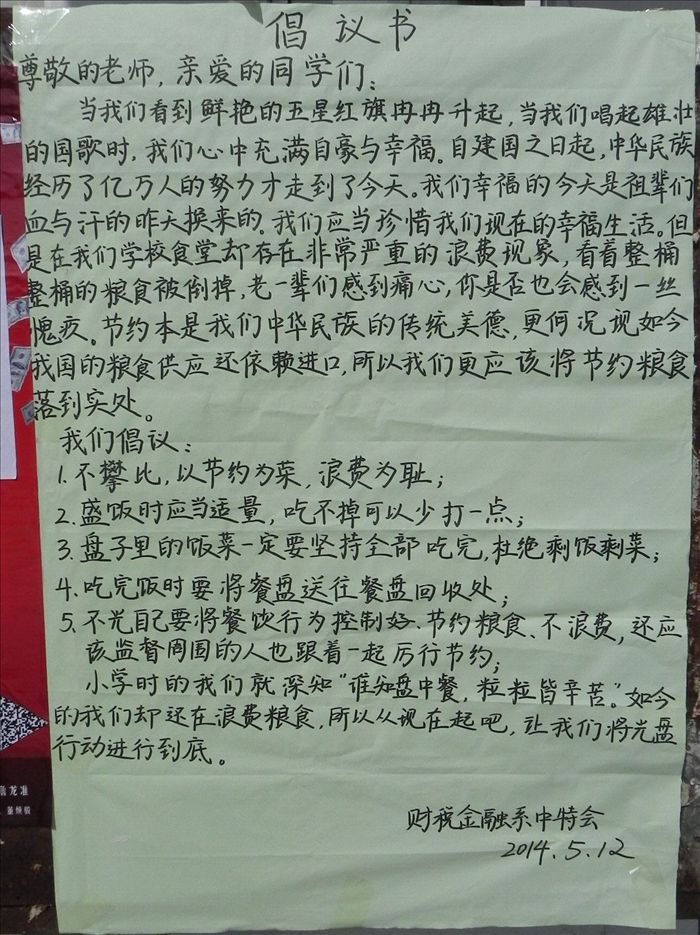 倡议书
尊敬的老师，亲爱的同学们：
当我们看到鲜艳的五星红旗冉冉升起，当我们唱起雄壮
的国歌时，我们心中充满自豪与幸福。自建国之日起，中华民族
经历了亿万人的努力才走到了今天。我们幸福的今天是祖辈们
血与汗的昨天换来的。我们应当珍惜我们现在的幸福生活。但
是在我们学校食堂却存在非常严重的浪费现象，看着整桶
整桶的粮食被倒掉，老一辈们感到痛心，你是否也会感到一丝
愧疚。节约本是我们中华民族的传统美德，更何况现如今
我国的粮食供应还依赖进口，所以我们更应该将节约粮食
落到实处。
我们倡议：
1.不攀比，以节约为荣，浪费为耻；
2.盛饭时应当适量，吃不掉可以少打一点；
3.盘子里的饭菜一定要坚持全部吃完，杜绝剩饭剩菜；
4.吃完饭时要将餐盘送往餐盘回收处；
5.不光自己要将餐饮行为控制好、节约粮食、不浪费，还应
该监督周围的人也跟着一起厉行节约；
小学时的我们就深知“谁知盘中餐，粒粒皆辛苦”。如今
的我们却还在浪费粮食，所以从现在起吧，让我们将光盘
行动进行到底。
财税金融系中特会
2014.5.12
龙准